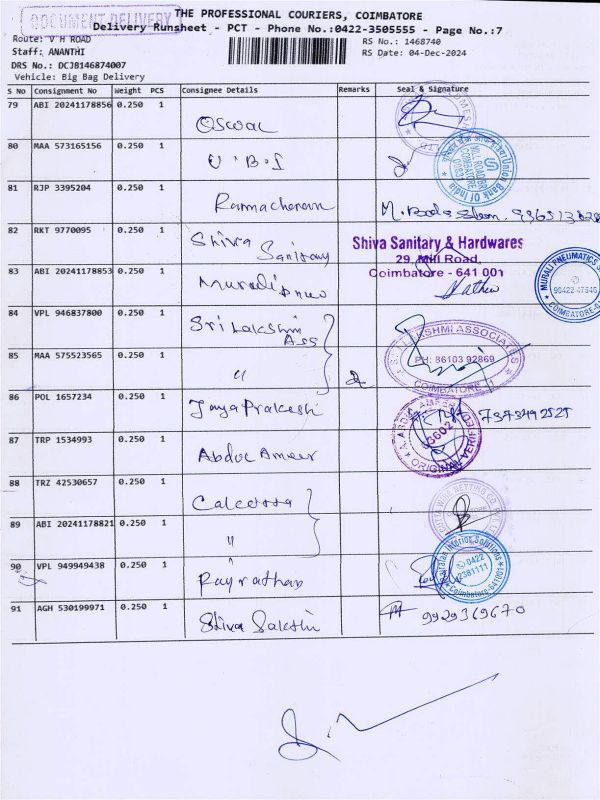 DOCUMENT DELIVERY
THE PROFESSIONAL COURIERS, COIMBATORE
Delivery Runsheet - PCT - Phone No.:0422-3505555 - Page No.:7
Route: V H ROAD
RS No.: 1468740
Staff: ANANTHI
RS Date: 04-Dec-2024
DRS No.: DCJB146874007
Vehicle: Big Bag Delivery
S No Consignment No Weight PCS Consignee Details Remarks Seal & Signature
79 ABI 20241178856 0.250 1 Oswal
80 MAA 573165156 0.250 1 U.B.I
Union Bank Of India
COIMBATORE
81 RJP 3395204 0.250 1
82 RKT 9770095 0.250 1 Shiva Sanitary
Shiva Sanitary & Hardwares
29, Mill Road,
Coimbatore - 641 001
83 ABI 20241178853 0.250 1 Murali Pneu
MURALI PNEUMATICS
90422 47546
COIMBATORE
84 VPL 946837800 0.250 1 Sri Lakshmi Ass
SRI LAKSHMI ASSOCIATES
PH: 86103 92869
COIMBATORE - 1
85 MAA 575523565 0.250 1 "
86 POL 1657234 0.250 1 Jaya Prakash
87 TRP 1534993 0.250 1 Abdul Ameer
ORIGINAL VERIFIED
88 TRZ 42530657 0.250 1 Calcutta
89 ABI 20241178821 0.250 1 "
90 VPL 949949438 0.250 1
Interior Solutions
0422
2381111
Coimbatore-641001
91 AGH 530199971 0.250 1 Shiva Sakthi 9929369670